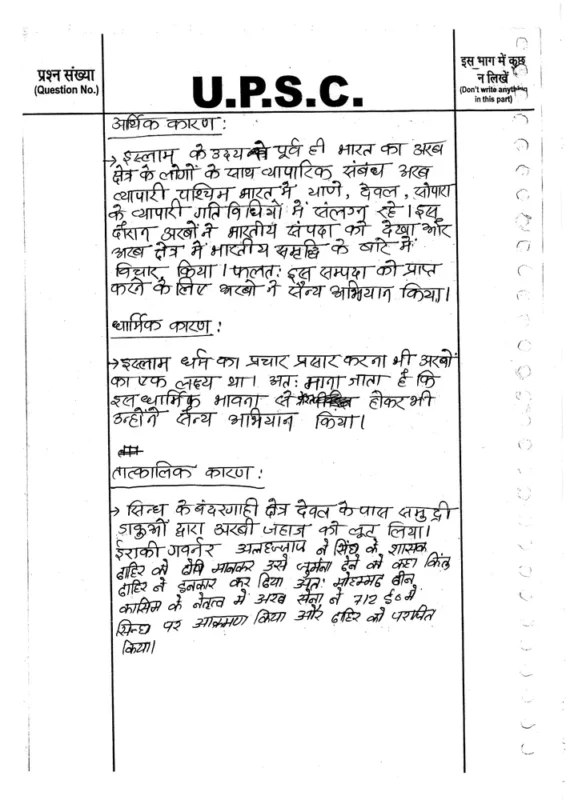 प्रश्न संख्या
(Question No.)
U.P.S.C.
इस भाग में कुछ
न लिखें
(Don't write anything
in this part)
आर्थिक कारण :
→ इस्लाम के उदय से पूर्व ही भारत का अरब
क्षेत्र के लोगों के साथ व्यापारिक संबंध अरब
व्यापारी पश्चिम भारत में थाणे, देवल, सोपारा
के व्यापारी गतिविधियों में संलग्न रहे। इस
दौरान अरबों ने भारतीय संपदा को देखा और
अरब क्षेत्र में भारतीय समृद्धि के बारे में
विचार किया। फलत: इस सम्पदा को प्राप्त
करने के लिए अरबों ने सैन्य अभियान किया।
धार्मिक कारण :
→ इस्लाम धर्म का प्रचार प्रसार करना भी अरबों
का एक लक्ष्य था। अत: माना जाता है कि
इस धार्मिक भावना से होकर भी
उन्होंने सैन्य अभियान किया।
तात्कालिक कारण :
→ सिन्ध के बंदरगाही क्षेत्र देवल के पास समुद्री
डाकुओं द्वारा अरबी जहाज को लूट लिया।
ईराकी गवर्नर अलहज्जाज ने सिंध के शासक
दाहिर को दोषि मानकर उसे जुर्माना देने को कहा किंतु
दाहिर ने इनकार कर दिया अत: मोहम्मद बीन
कासिम के नेतृत्व में अरब सेना ने 712 ई० में
सिन्ध पर आक्रमण किया और दाहिर को पराजित
किया।